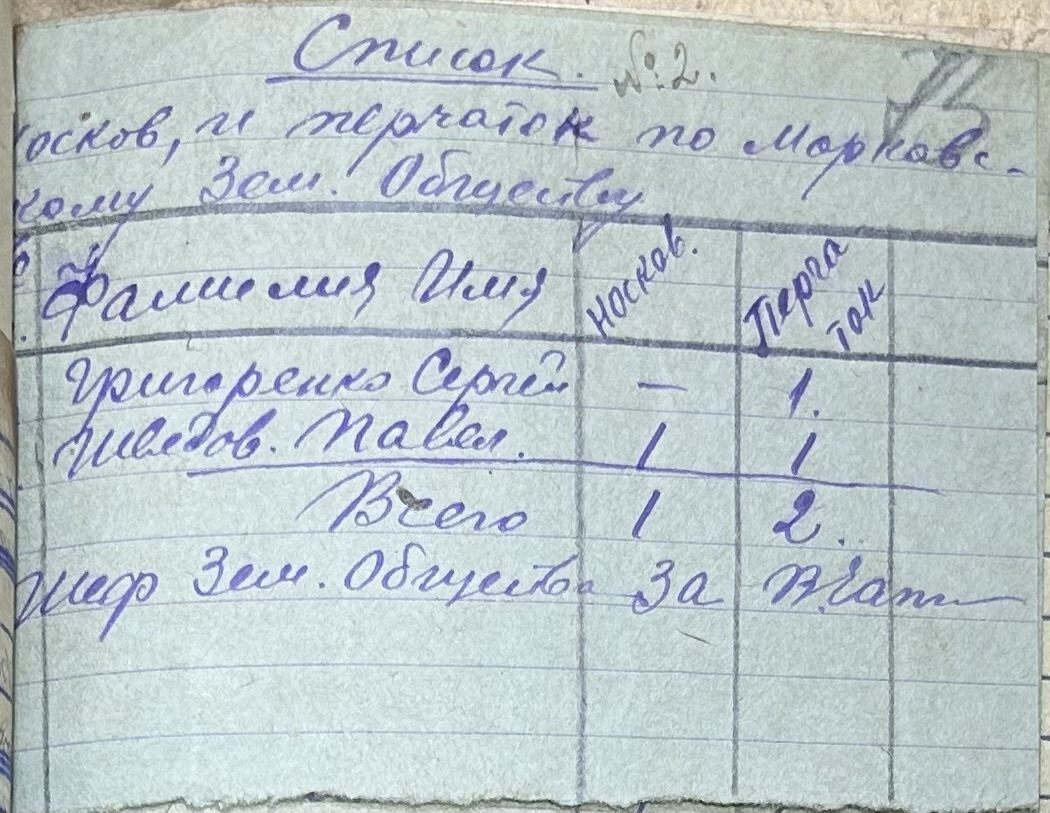 Список. №2.
носков, и перчаток по Марковс-
кому Зем. Обществу
Фамилия Имя Носков. Перча
ток
Григоренко Сергей — 1.
Павел. 1 1
Всего 1 2..
Шеф Зем. Общества За